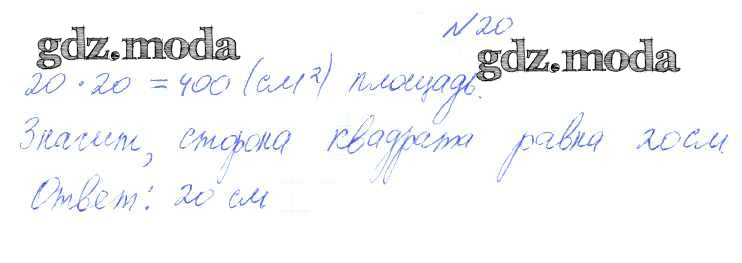 №20
gdz.moda
gdz.moda
20 · 20 = 400 (см²) площадь.
Значит, сторона квадрата равна 20см
Ответ: 20 см